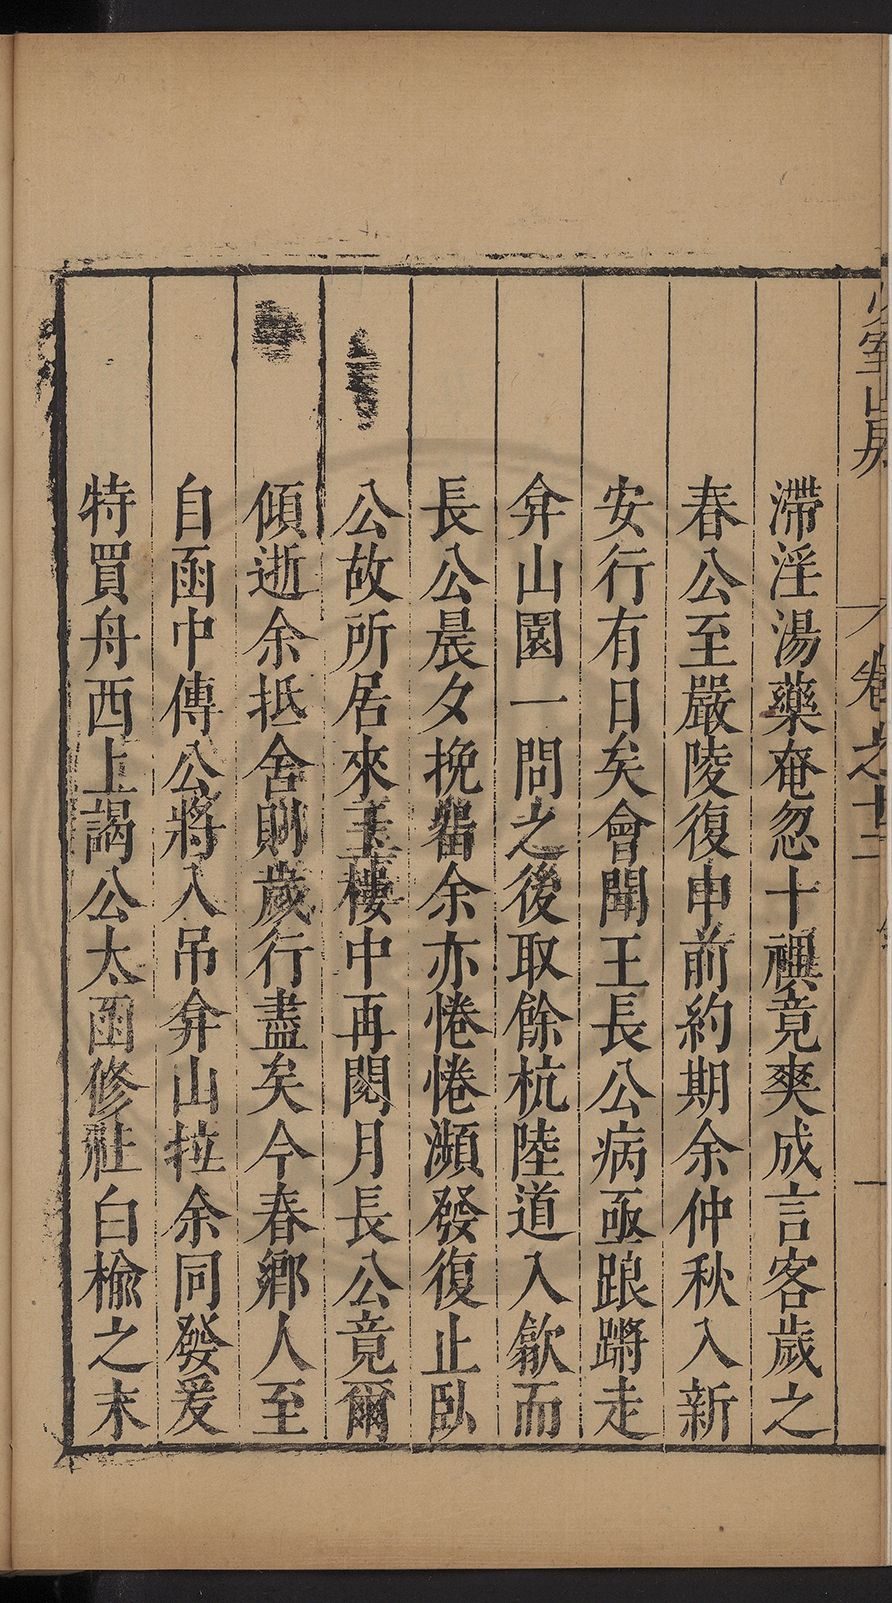 少室山房 卷之十二
滯淫湯藥奄忽十禩竟爽成言客歲之
春公至嚴陵復申前約期余仲秋入新
安行有日矣會聞王長公病亟踉蹡走
弇山園一問之後取餘杭陸道入歙而
長公晨夕挽畱余亦惓惓瀕發復止臥
公故所居來玉樓中再閱月長公竟爾
傾逝余抵舍則歲行盡矣今春鄉人至
自函中傳公將入吊弇山拉余同發爰
特買舟西上謁公太函修社白榆之末